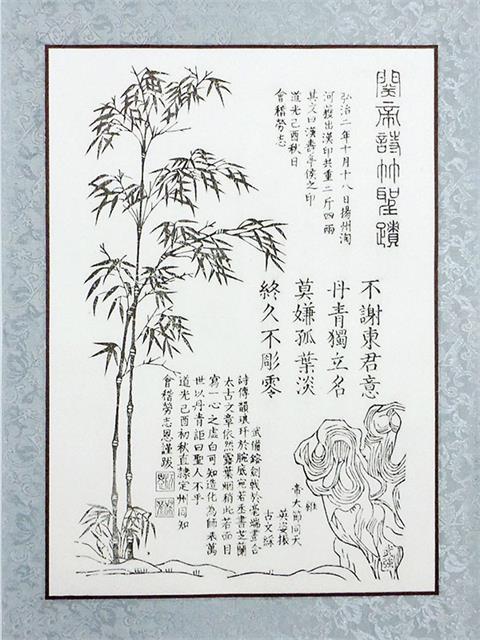 關帝詩竹聖蹟
弘治二年十月十八日揚州淘
河獲出漢印共重二斤四兩
其文曰漢壽亭侯之印
道光己酉秋日
會稽勞志
不謝東君意
丹青獨立名
莫嫌孤葉淡
終久不彫零
維
帝大節同天
英姿振
古文綵
武備鎗劍戟於毫端畫合
詩傳韻琪玕於腕底宛若丕書芝蘭
太古文章依然露葉烟稍此若面目
寫一心之虛白可知造化為師表萬
世以丹青詎曰聖人不乎
道光己酉初秋直隸定州同知
會稽勞志恩謹跋